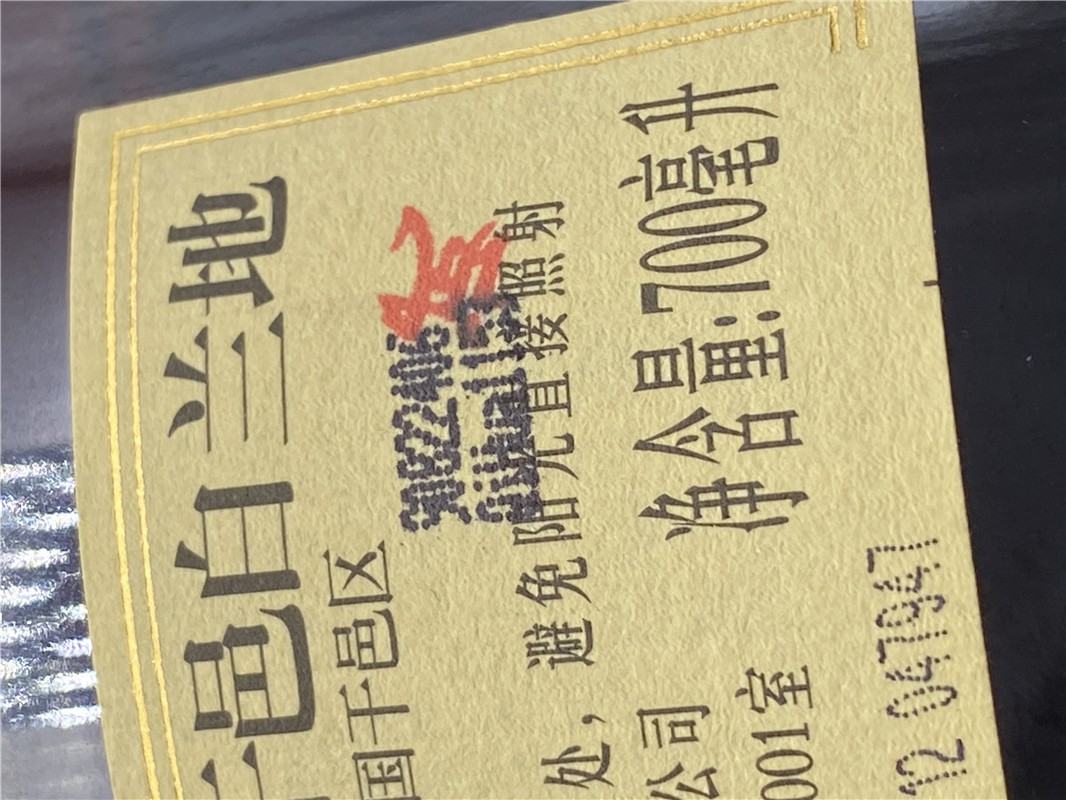 干邑白兰地
国干邑区
处，避免阳光直接照射
公司
净含量:700毫升
001室
12 0479947